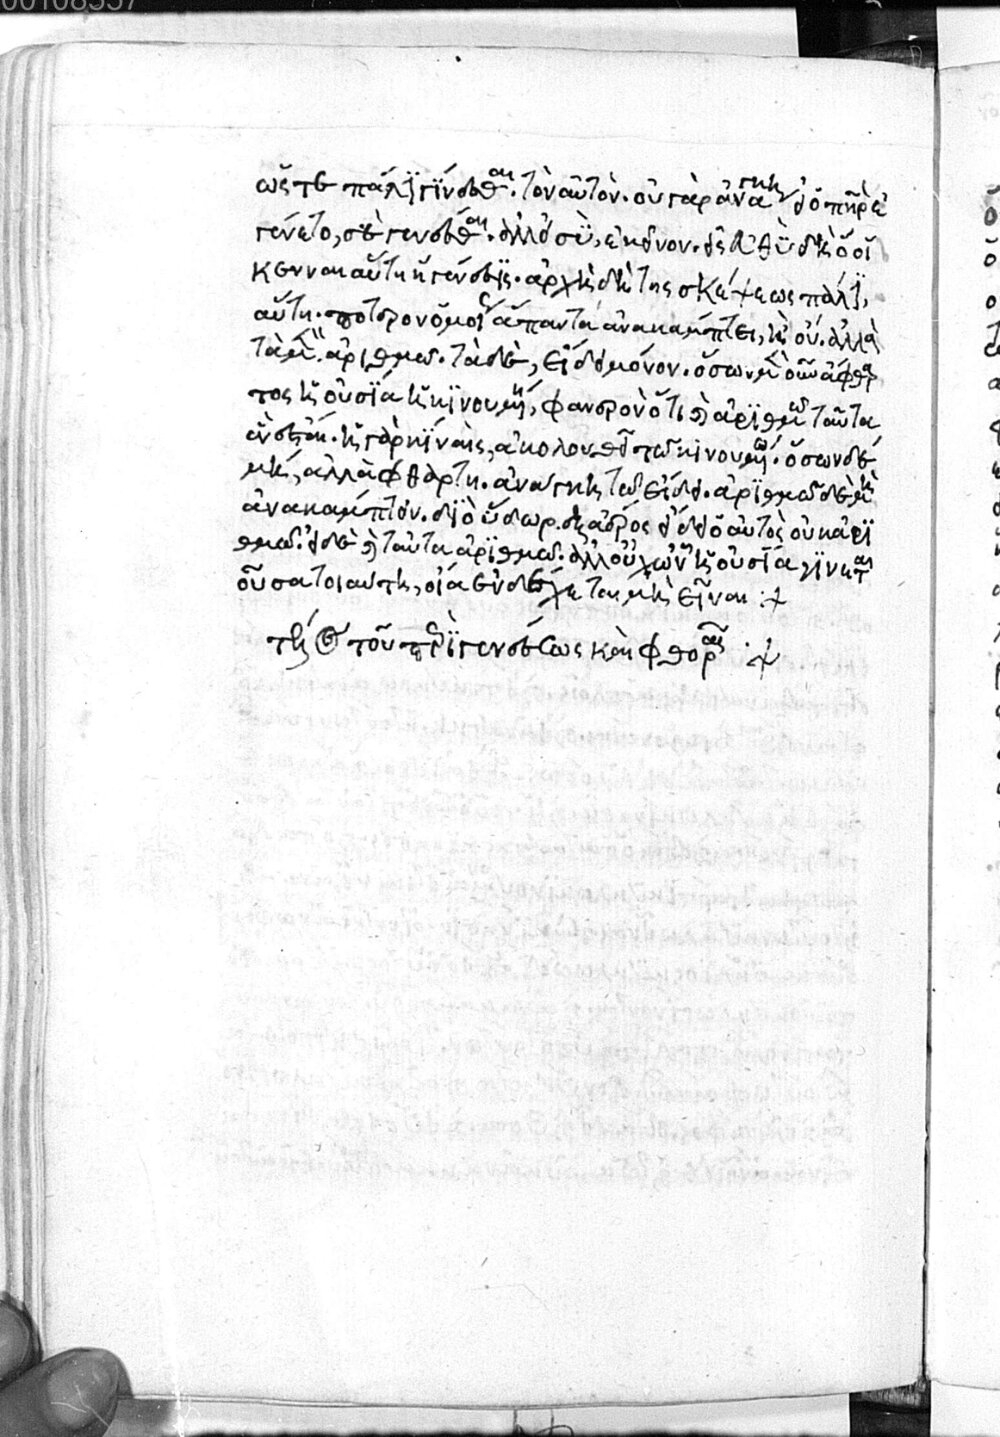 00108357
ὥστε πάλιν γίνεσθαι τὸν αὐτὸν. οὐ γὰρ ἀνάγκη εἰ ὁ πατὴρ ἐ
γένετο, σὲ γενέσθαι. ἀλλ' εἰ σὺ, ἐκεῖνον. εἰς εὐθὺ δὲ ἔοι
κεν εἶναι αὕτη ἡ γένεσις. ἀρχὴ δὲ τῆς σκέψεως πάλιν
αὕτη. πότερον ὁμοίως ἅπαντα ἀνακάμπτει, ἢ οὔ. ἀλλὰ
τὰ μὲν ἀριθμῶ. τὰ δὲ, εἴδει μόνον. ὅσων μὲν οὖν ἄφθαρ
τος ἡ οὐσία ἡ κινουμένη, φανερὸν ὅτι καὶ ἀριθμῶ ταῦτα
ἔσται. ἡ γὰρ κίνησις, ἀκολουθεῖ τῶ κινουμένω. ὅσων δὲ
μὴ, ἀλλὰ φθαρτὴ. ἀνάγκη τῶ εἴδει. ἀριθμῶ δὲ μὴ
ἀνακάμπτειν. διὸ ὕδωρ ἐξ ἀέρος εἴδει ὁ αὐτὸς οὐκ ἀρι
θμῶ. εἰ δὲ καὶ ταῦτα ἀριθμῶ. ἀλλ' οὐχ ὧν ἡ οὐσία γίνεται
οὖσα τοιαύτη, οἵα ἐνδέχεται μὴ εἶναι :+
τέλος τοῦ περὶ γενέσεως καὶ φθορᾶς :+